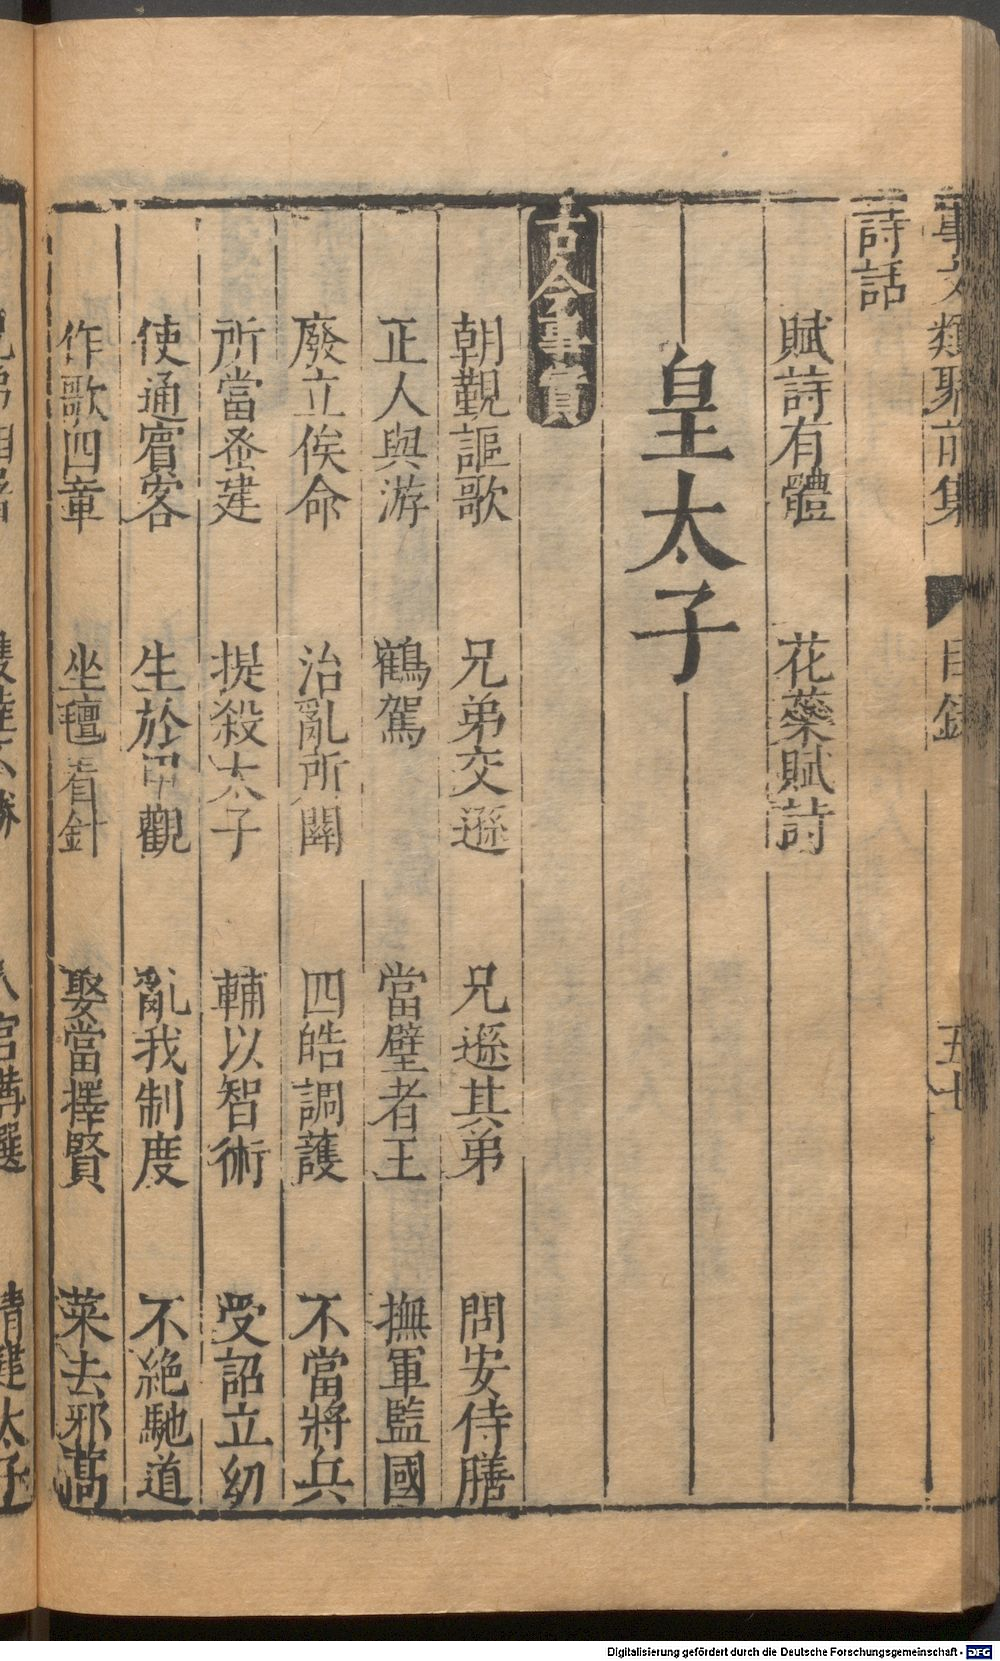 事文類聚前集 目錄 五十
詩話
賦詩有體 花蘂賦詩
皇太子
古今事實
朝覲謳歌 兄弟交遜 兄遜其弟 問安侍膳
正人與游 鶴駕 當璧者王 撫軍監國
廢立俟命 治亂所關 四皓調護 不當將兵
所當蚤建 提殺太子 輔以智術 受詔立幼
使通賓客 生於甲觀 亂我制度 不絕馳道
作歌四章 坐氊看針 娶當擇賢 菜去邪蒿
Digitalisierung gefördert durch die Deutsche Forschungsgemeinschaft - DFG